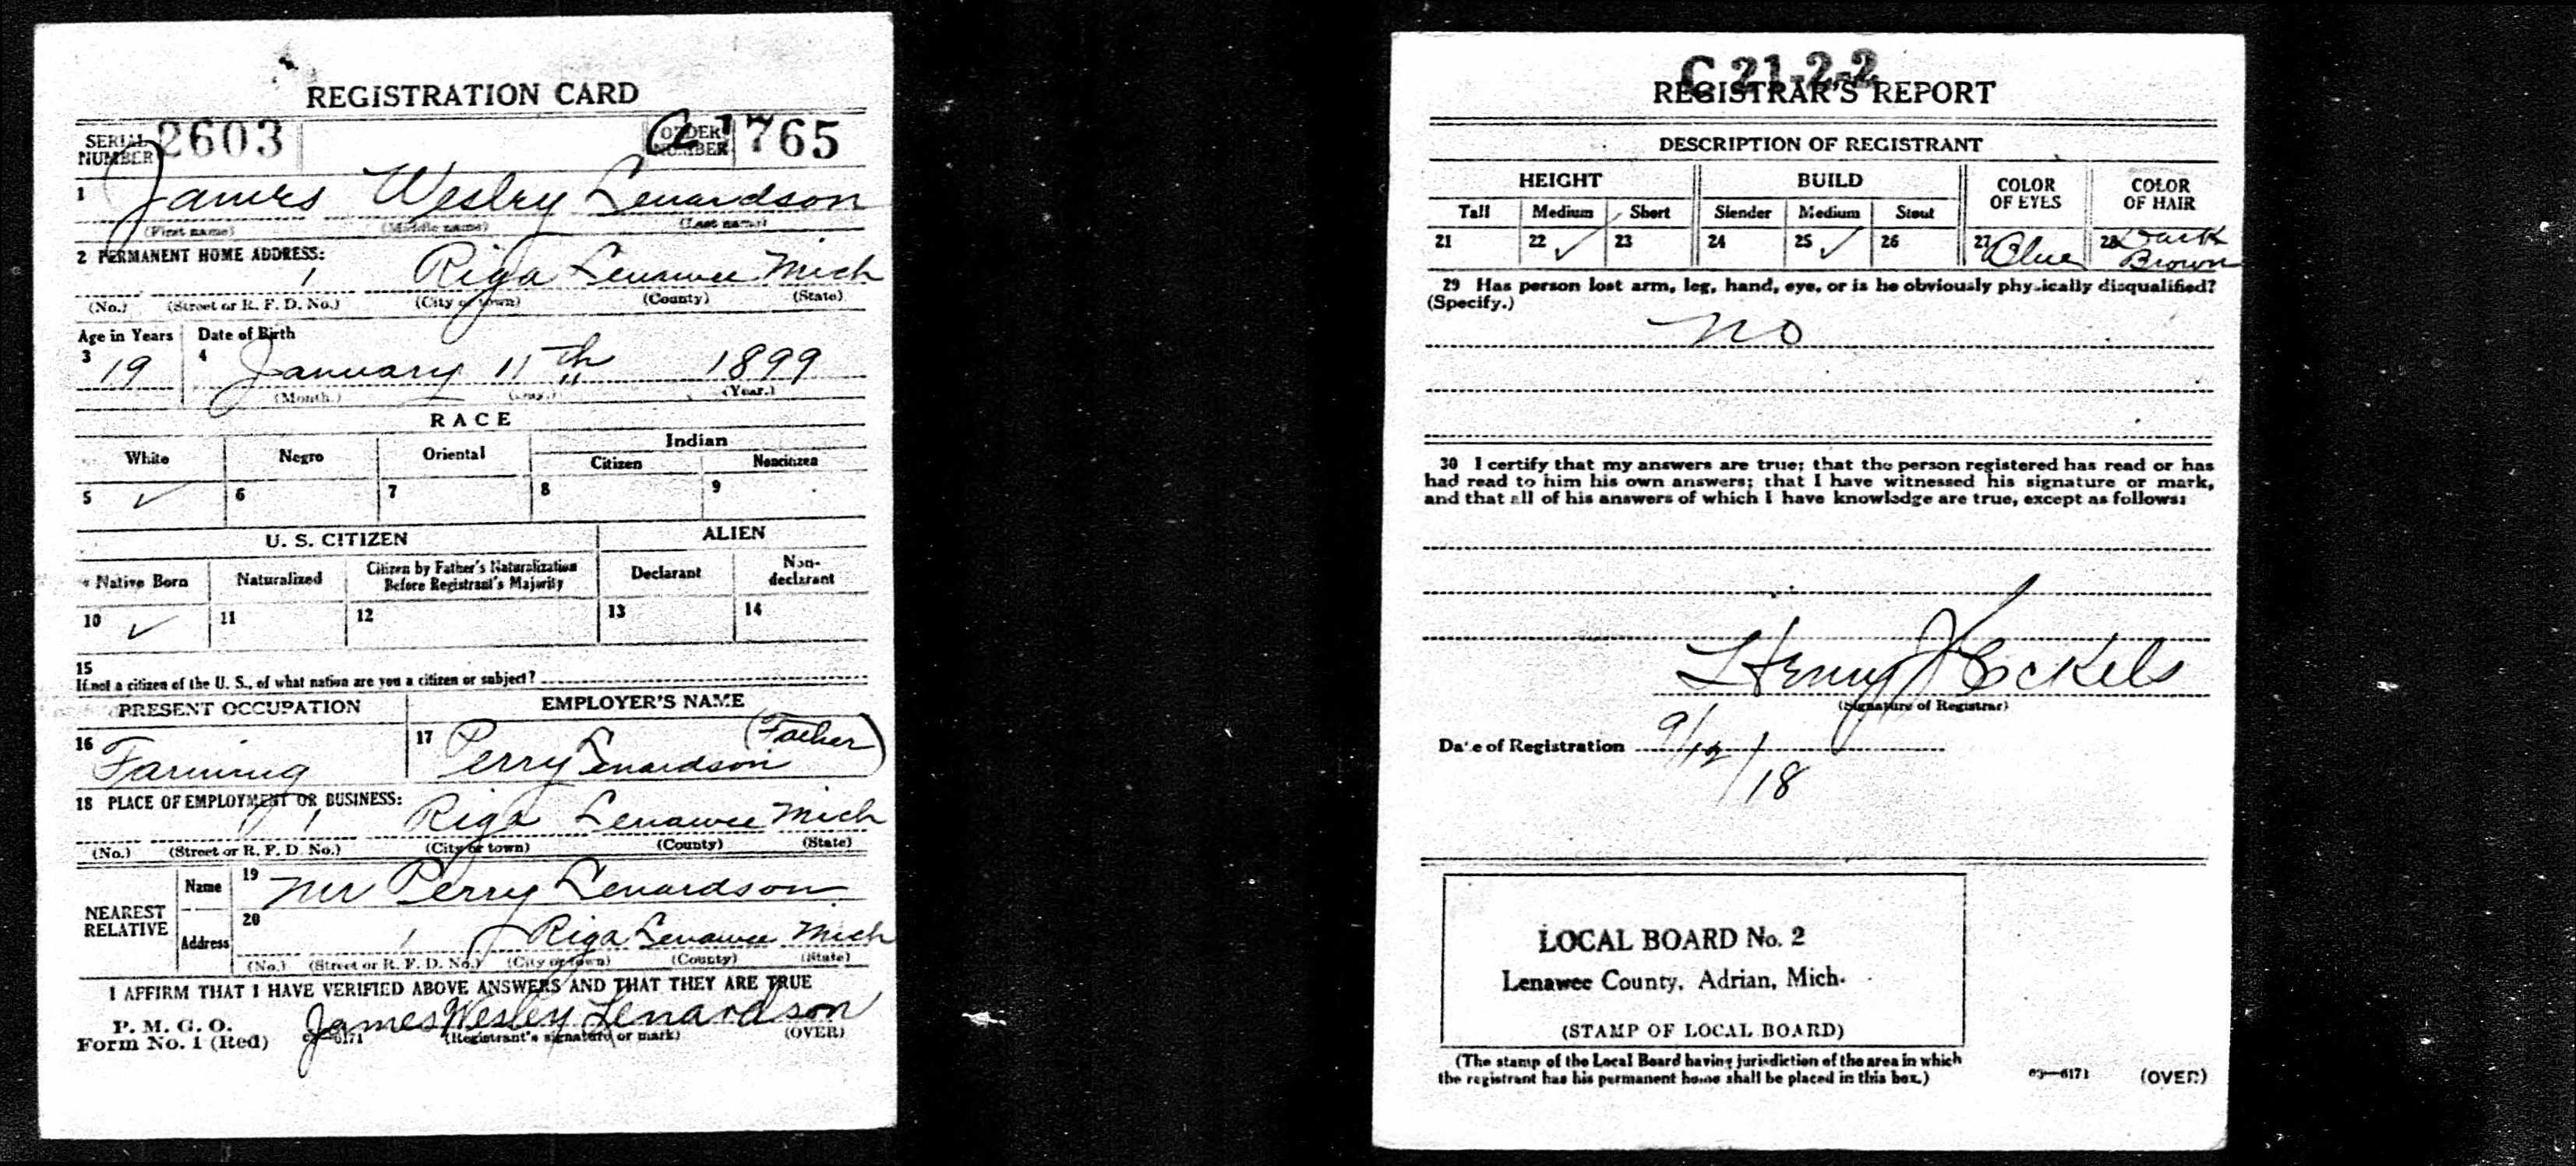 REGISTRATION CARD
SERIAL NUMBER 2603 ORDER NUMBER 765
1 James Wesley Lenardson
(First name) (Middle name) (Last name)
2 PERMANENT HOME ADDRESS:
1 Riga Lenawee Mich
(No.) (Street or R. F. D. No.) (City or town) (County) (State)
Age in Years Date of Birth
3 19 4 January 11th 1899
(Month.) (Day.) (Year.)
RACE
White Negro Oriental Indian
Citizen Noncitizen
5 ✓ 6 7 8 9
U. S. CITIZEN ALIEN
Native Born Naturalized Citizen by Father's Naturalization Before Registrant's Majority Declarant Non-declarant
10 ✓ 11 12 13 14
15
If not a citizen of the U. S., of what nation are you a citizen or subject?
PRESENT OCCUPATION EMPLOYER'S NAME
16 Farming 17 Perry Lenardson (Father)
18 PLACE OF EMPLOYMENT OR BUSINESS:
1 Riga Lenawee Mich
(No.) (Street or R. F. D. No.) (City or town) (County) (State)
NEAREST RELATIVE
Name 19 Mr Perry Lenardson
Address 20 1 Riga Lenawee Mich
(No.) (Street or R. F. D. No.) (City or town) (County) (State)
I AFFIRM THAT I HAVE VERIFIED ABOVE ANSWERS AND THAT THEY ARE TRUE
P. M. G. O.
Form No. 1 (Red) James Wesley Lenardson
(Registrant's signature or mark) (OVER)
C 21-2-2
REGISTRAR'S REPORT
DESCRIPTION OF REGISTRANT
HEIGHT BUILD COLOR OF EYES COLOR OF HAIR
Tall Medium Short Slender Medium Stout
21 22 ✓ 23 24 25 ✓ 26 27 Blue 28 Dark Brown
29 Has person lost arm, leg, hand, eye, or is he obviously physically disqualified?
(Specify.)
No
30 I certify that my answers are true; that the person registered has read or has
had read to him his own answers; that I have witnessed his signature or mark,
and that all of his answers of which I have knowledge are true, except as follows:
Henry Eckels
(Signature of Registrar)
Date of Registration 9/12/18
LOCAL BOARD No. 2
Lenawee County, Adrian, Mich.
(STAMP OF LOCAL BOARD)
(The stamp of the Local Board having jurisdiction of the area in which
the registrant has his permanent home shall be placed in this box.)
03—6171 (OVER)